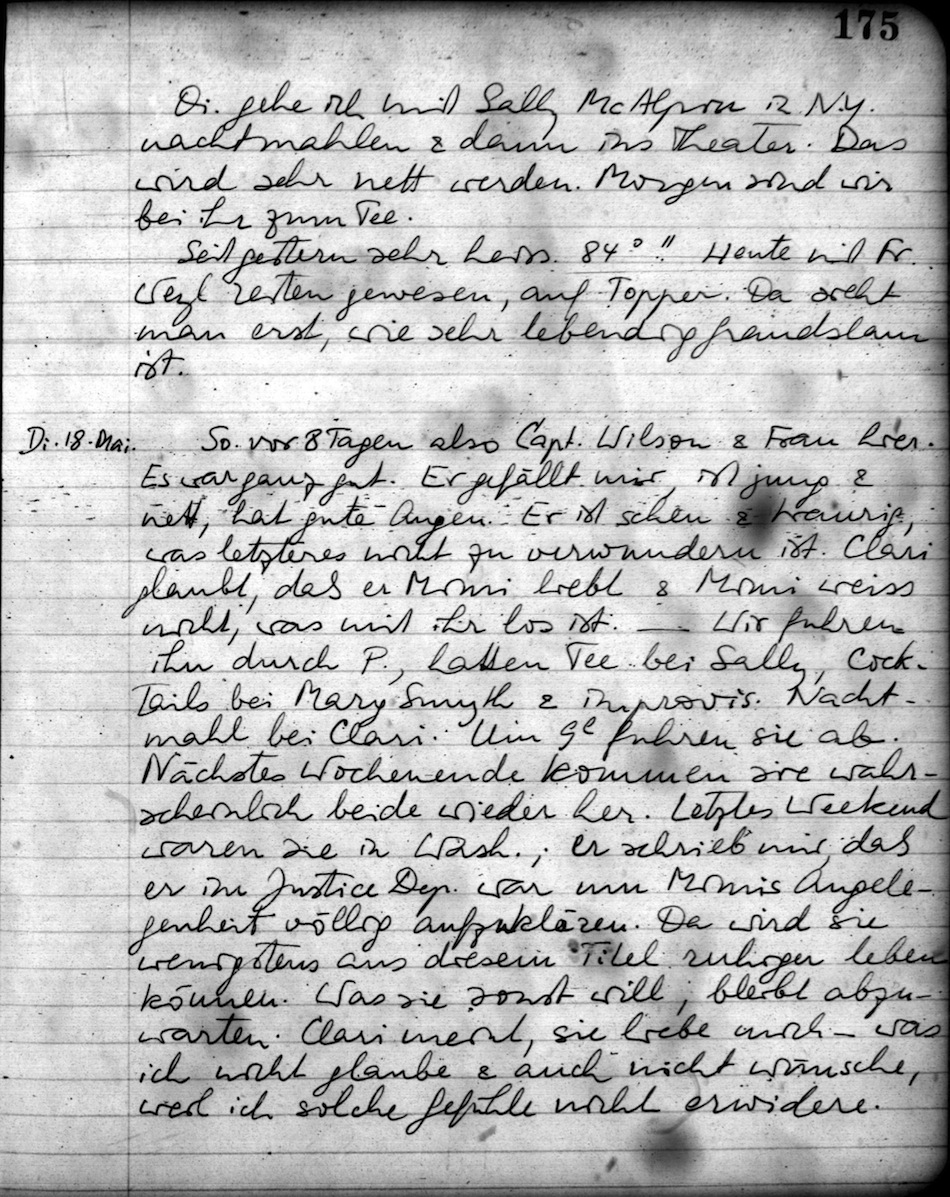 175
Di. gehe ich mit Sally McAlpin in N.Y.
nachtmahlen & dann ins Theater. Das
wird sehr nett werden. Morgen sind wir
bei ihr zum Tee.
Seit gestern sehr heiss. 84° !! Heute mit Fr.
Weyl reiten gewesen, auf Topper. Da sieht
man erst, wie sehr lebendig
ist.
Di. 18. Mai. So. vor 8 Tagen also Capt. Wilson & Frau hier.
Es war ganz gut. Er gefällt mir, ist jung &
nett, hat gute Augen. Er ist scheu & traurig,
was letzteres nicht zu verwundern ist. Clari
glaubt, dass er Mimi liebt & Mimi weiss
nicht, was mit ihr los ist. — Wir fuhren
ihn durch P., hatten Tee bei Sally, Cock-
tails bei Mary Smyth & improvis. Nacht-
mahl bei Clari. Um 9h fuhren sie ab.
Nächstes Wochenende kommen sie wahr-
scheinlich beide wieder her. Letztes Weekend
waren sie in Wash.; er schrieb mir, dass
er im Justice Dep. war um Mimis Angele-
genheit völlig aufzuklären. Da wird sie
wenigstens aus diesem Titel ruhiger leben
können. Was sie sonst will, bleibt abzu-
warten. Clari meint, sie liebe mich – was
ich nicht glaube & auch nicht wünsche,
weil ich solche Gefühle nicht erwidere.